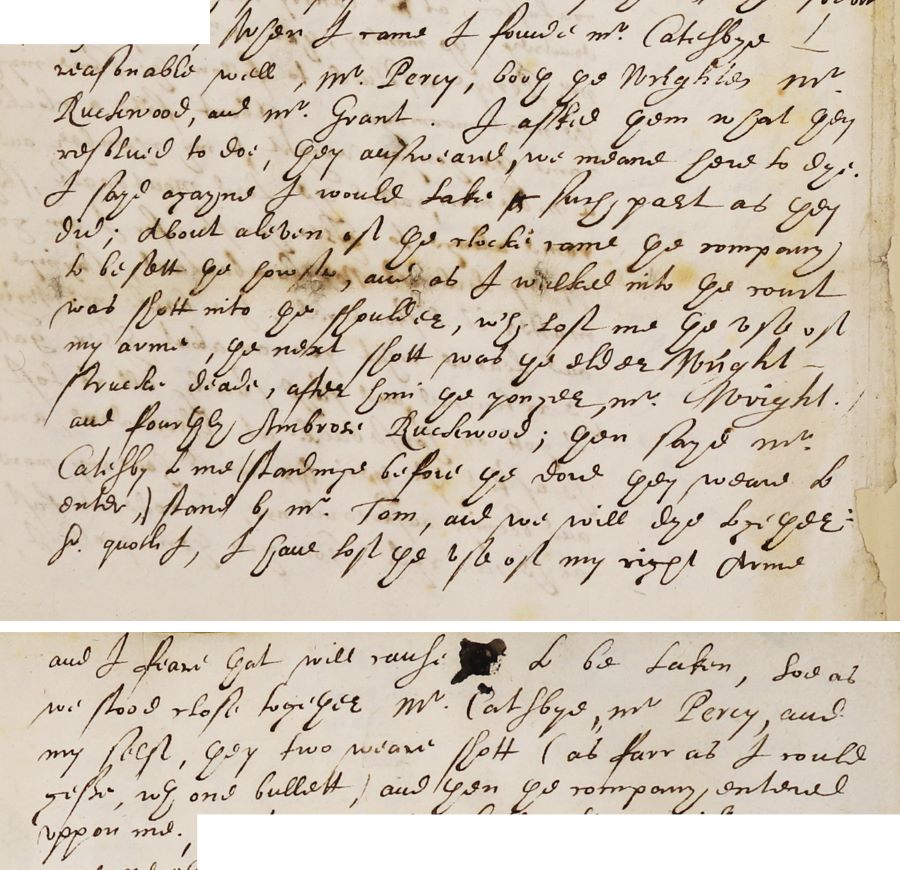 When I came I founde mr. Catesbye
reasonable well, mr. Percy, both ye Wrightes mr.
Ruckwood, and mr. Grant. I asked them what they
resolved to doe, they answeared, we meane here to dye.
I sayd agayne I would take such part as they
did; About aleven of the clocke came the company
to besett the howse, and as I walked into the court
was shott into the shoulder, wch lost me the use of
my arme, the next shott was the elder Wright
strucke deade, after him the yonger mr. Wright.
and fourthly Ambrose Ruckwood; then sayd mr.
Catesby to me (standinge before the dore they weare to
enter,) stand by mr. Tom, and we will dye together:
Sr. quoth I, I have lost the use of my right Arme
and I feare that will cause to be taken, soe as
we stood close together mr. Catsbye, mr Percy, and
my selfe, they two weare shott (as farr as I could
gesse, wth one bullett) and then the company entered
uppon me.